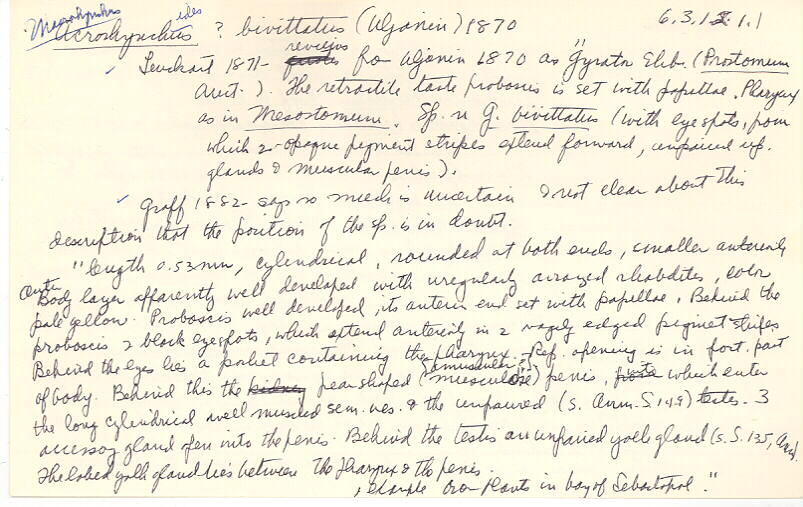 Macrorhynchus ides
Acrorhynchus ? bivittatus (Uljanin) 1870 6.3.12.1.1
✓ Leuckart 1871- reviews from Uljanin 1870 as "Gyrator Ehb. (Prostomum
Auct.). The retractile taste proboscis is set with papillae. Pharynx
as in Mesostomum. Sp. n G. bivittatus (with eyespots, from
which 2-opaque pigment stripes extend forward, unpaired
glands & muscular penis).
✓ Graff 1882- says so much is uncertain & not clear about this
description that the position of the sp. is in doubt.
"length 0.53 mm, cylindrical, rounded at both ends, smaller anteriorly
Outer
Body layer apparently well developed with irregularly arrayed rhabdites, color
pale yellow. Proboscis well developed, its anterior end set with papillae. Behind the
proboscis 2 black eyespots, which extend anteriorly in 2 vaguely edged pigment stripes
Behind the eyes lies a pocket containing the pharynx. Rep. opening is in post. part
of body. Behind this the kidney pear shaped (emuscular) (musculöse) penis, which enter
the long cylindrical well muscled sem. ves. & the unpaired (s. Anm. S. 149) testes. 3
accessory gland open into the penis. Behind the testis an unpaired yolk gland (s. S. 135, Anm.
The lobed yolk gland lies between the pharynx & the penis.
, example on plants in bay of Sebastopol."